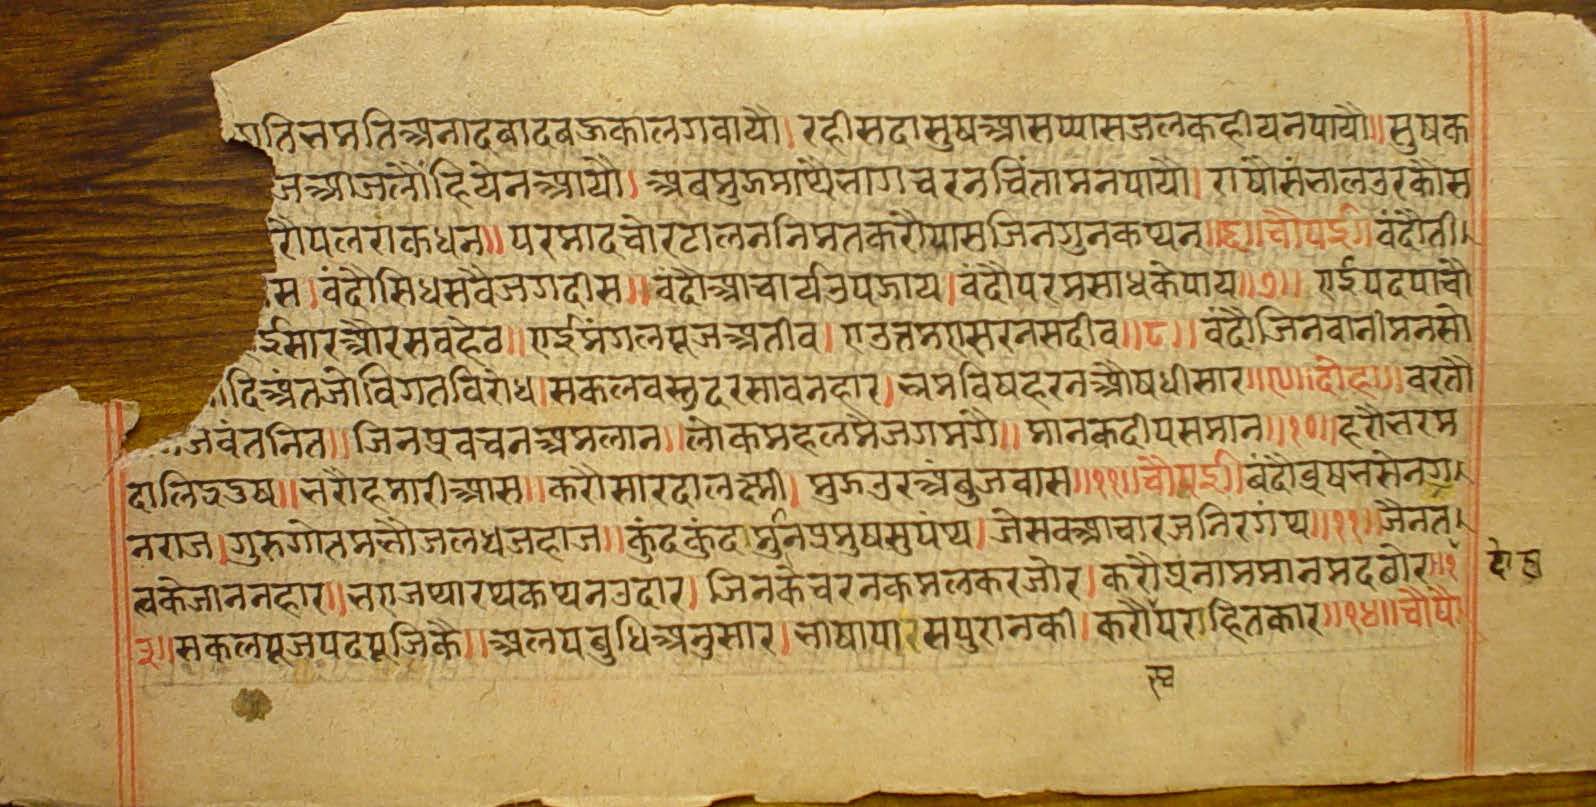 गतिभमतिअनादबादबऊकालगवायौ। रहीसदासुषआसप्यासजलकहीयनपायौ॥ सुषक
जआजलौंहियेनआयौ। अबमुऊमाथैभागचरनचिंतामनपायौ। राषौसंभालउरकौस
रौपलराकधन॥ परमादचोरटालननिमतकरौपासजिनगुनकथन॥६॥चौपई॥ वंदौती
स। वंदौसिधसवैजगदीस॥ वंदौआचार्यउपजाय। वंदौपरमसाधकेपाय॥७॥ एईपदपांचौ
ईसारऔरसवहेव॥ एईमंगलपूजअतीव। एउतमएसरनसदीव॥८॥ वंदौजिनवानीमनसो
दिअंतजोविगतविरोध। सकलवस्तुदरसावनहार। भ्रमविषहरनऔषधीसार॥९॥दोहा॥ वरतौ
जवंतनित॥ जिनप्रवचनअमलान॥ लोकमहलमैजगमगै॥ मानकदीपसमान॥१०॥ हरौभरम
दालिद्रदुष॥ भरौहमारीआस॥ करौसारदालक्ष्मी। मुऊउरअंबुजवास॥११॥चौपई॥ वंदौव्रषभसेनग
नराज। गुरुगोतमभौजलधजहाज॥ कुंदकुंदमुनप्रमुषसुपंथ। जेसवआचारजनिरगंथ॥१२॥ जैनत
त्वकेजाननहार॥ भएजथारथकथनउदार। जिनकेचरनकमलकरजोर। करौप्रनाममानमदछोर॥१
३॥ सकलपूजपदपूजिकै॥ अलपबुधिअनुसार। भाषापारसपुरानकी। करौंपराहितकार॥१४॥चौपै
दोहा
स्व